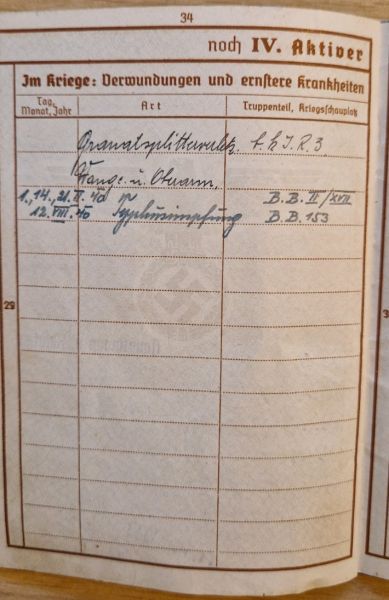 34
noch IV. Aktiver
Im Kriege: Verwundungen und ernstere Krankheiten
Tag, Monat, Jahr Art Truppenteil, Kriegsschauplatz
Granatsplitterverletz. J.R. 3
Wange u. Oberarm.
1., 14., 21. II. 40 Typhusimpfung B.B. II/XVII
12. VIII. 40 B.B. 153
29
3